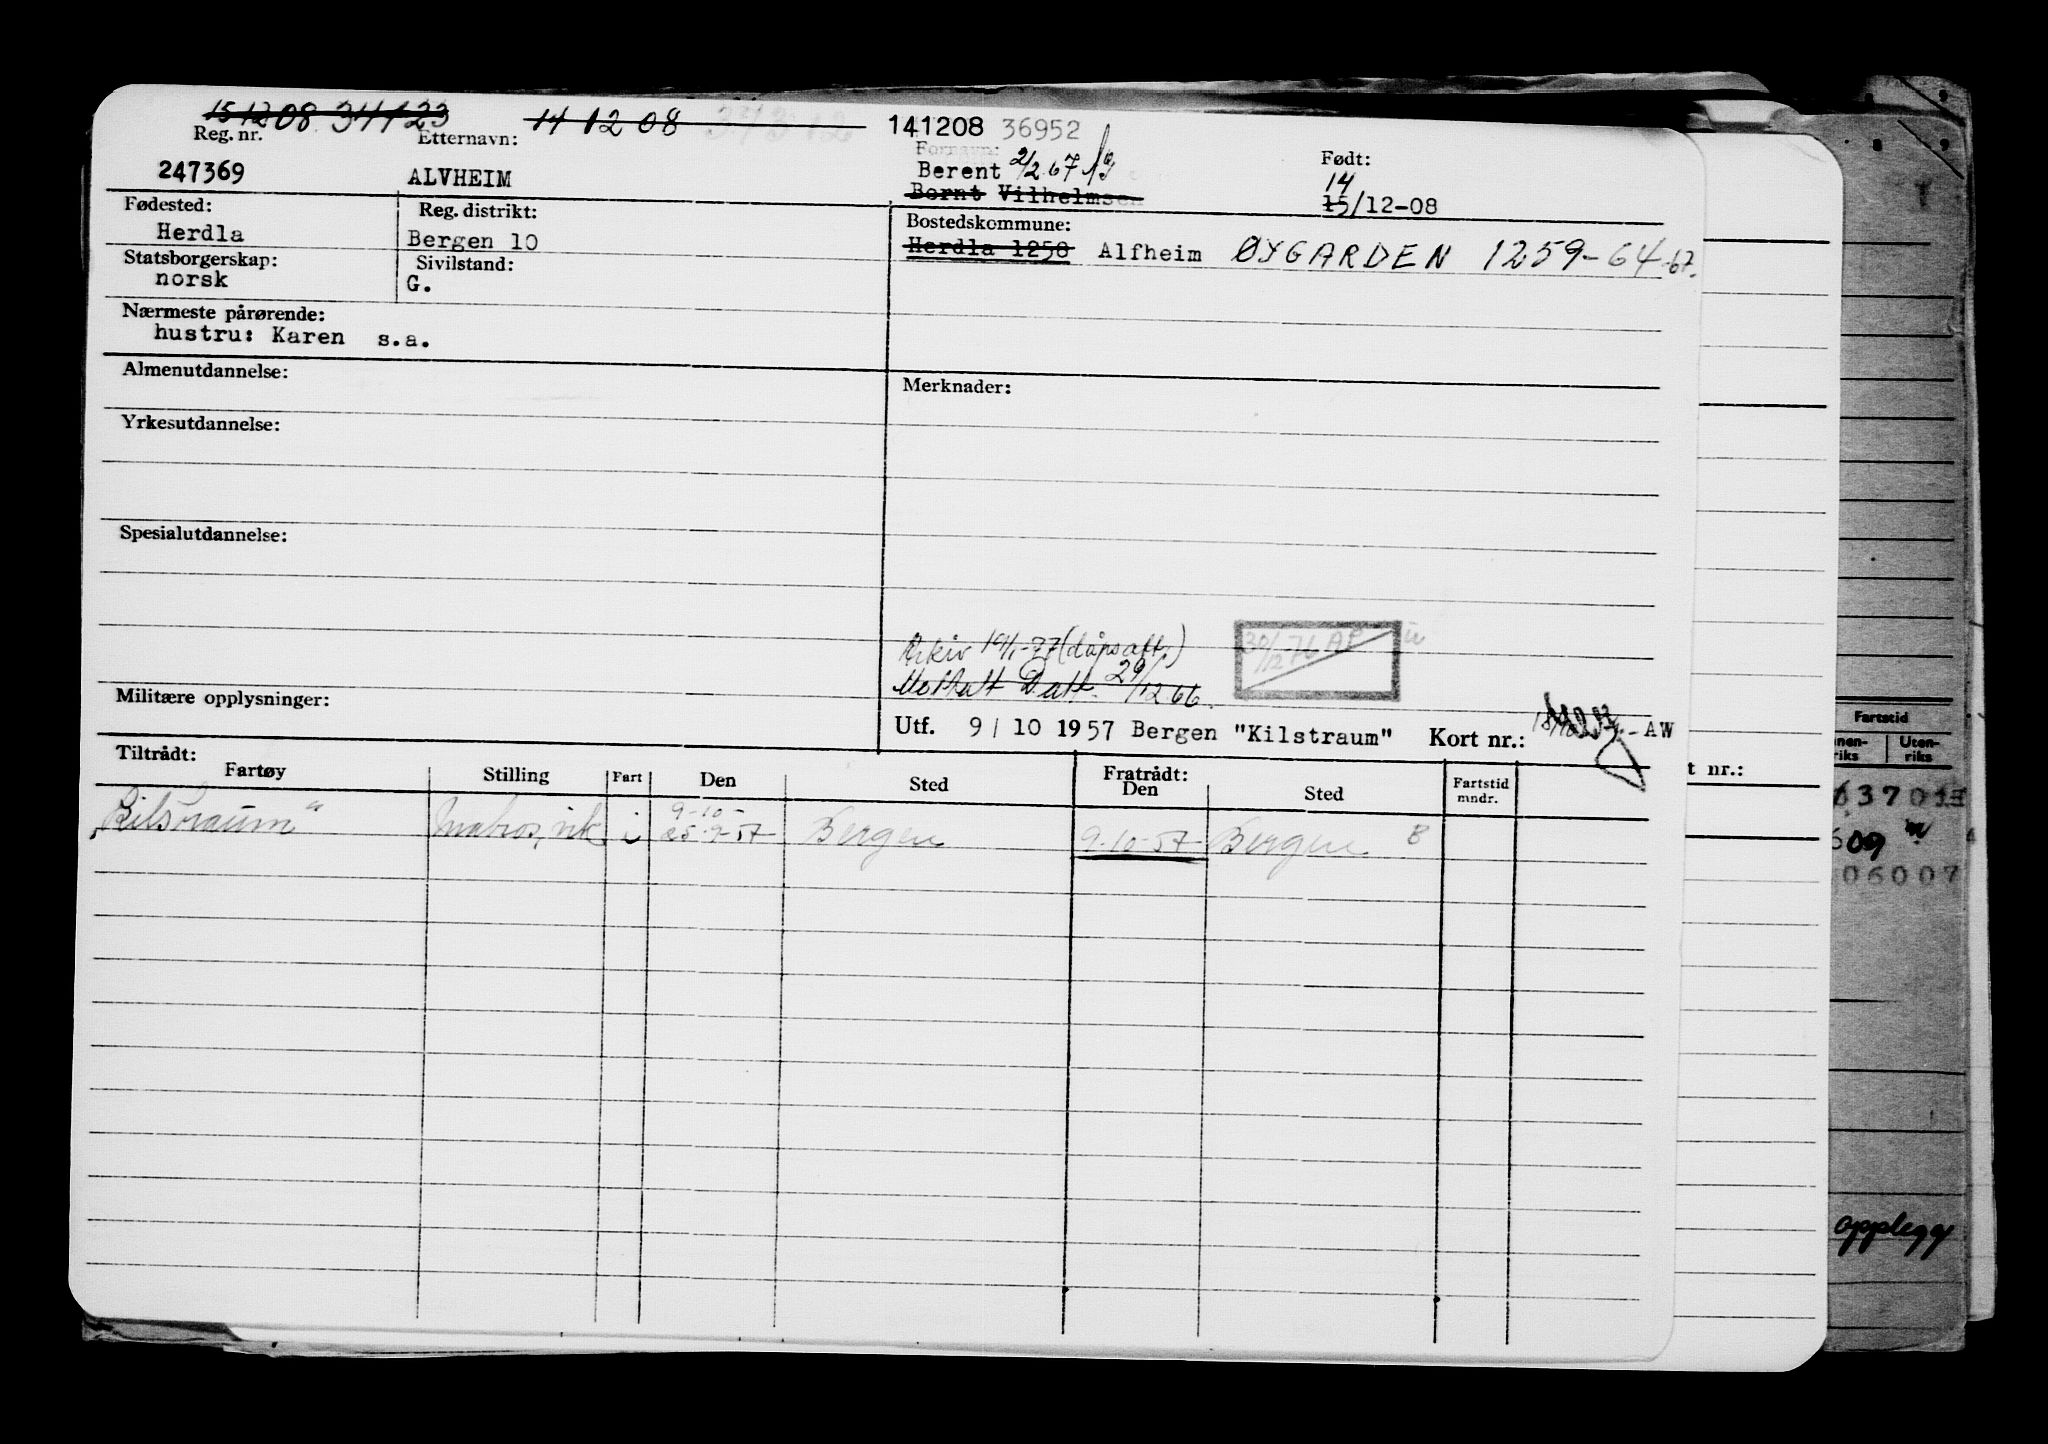 15 12 08 34123 14 12 08 34312 141208 36952
Reg. nr. Etternavn: Fornavn: Født:
247369 ALVHEIM Berent 2/2.67 14
Bernt Vilhelmsen 15/12-08
Fødested: Reg. distrikt: Bostedskommune:
Herdla Bergen 10 Herdla 1258 Alfheim ØYGARDEN 1259-64-67.
Statsborgerskap: Sivilstand:
norsk G.
Nærmeste pårørende:
hustru: Karen s.a.
Almenutdannelse: Merknader:
Yrkesutdannelse:
Spesialutdannelse:
Arkiv 19/1-77 (dåpsatt.) 30/12-76 AP
Mottatt Datt. 29/12.66.
Militære opplysninger:
Utf. 9/10 1957 Bergen "Kilstraum" Kort nr.: AW
Tiltrådt: Fratrådt:
Fartøy Stilling Fart Den Sted Den Sted Fartstid mndr.
9-10-
"Kilstraum" Matros, vik i 25-9-57 Bergen 9-10-57 Bergen B
Fartstid
Uten-
riks riks
t nr.:
63701
609
06007
opplegg